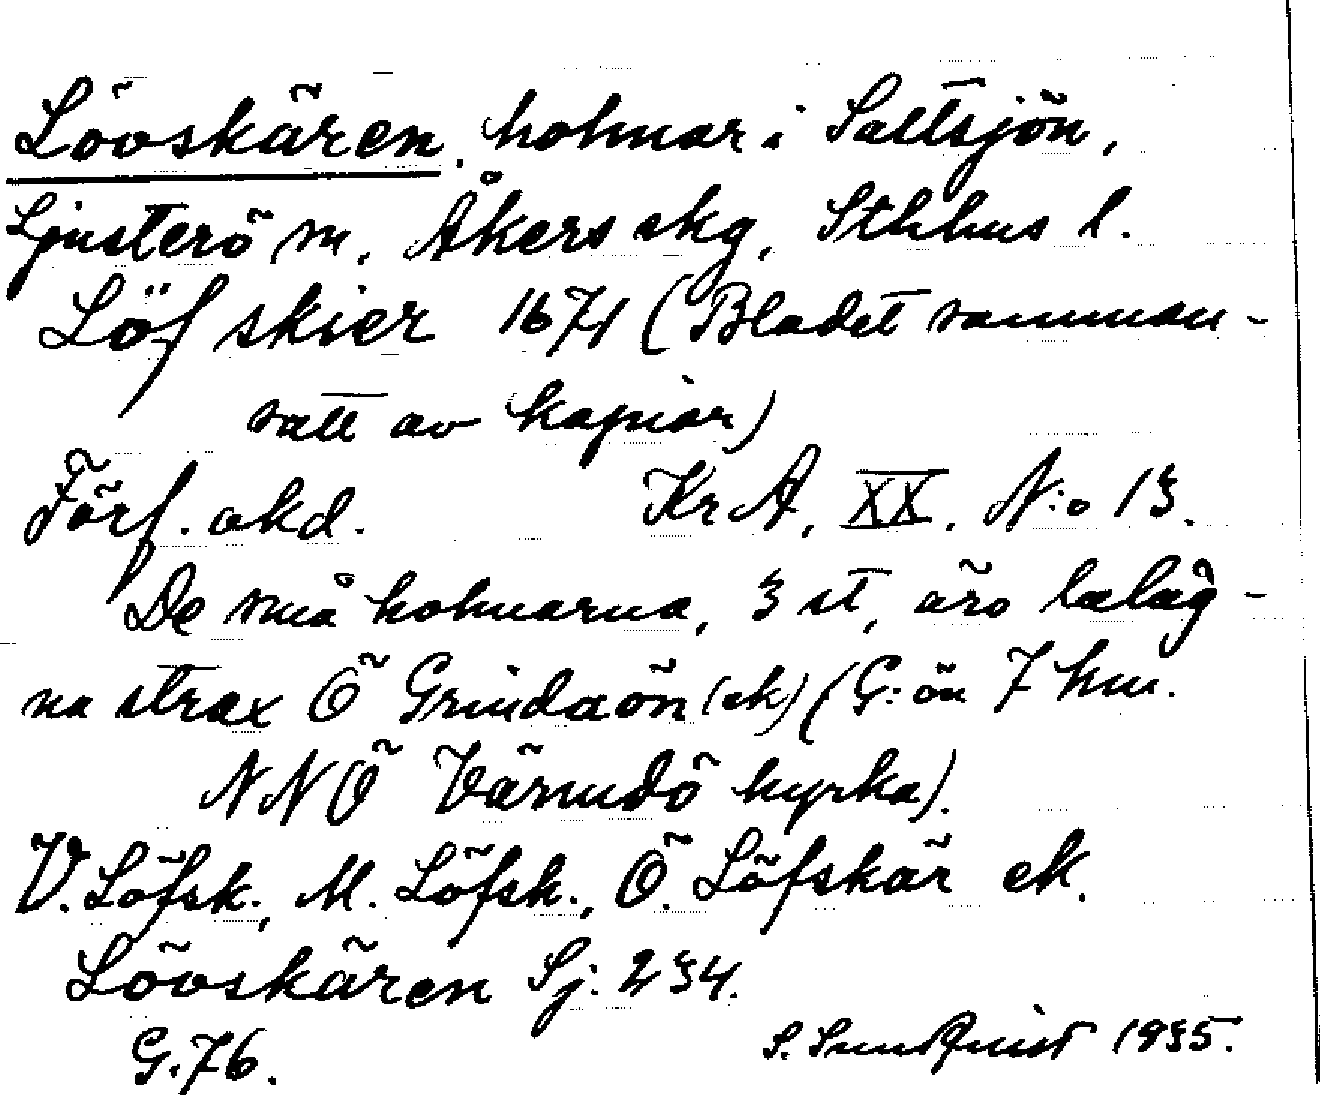 Lövskären, holmar i Saltsjön,
Ljusterö sn, Åkers skg, Sthlms l.
Löfskier 1671 (Bladet samman-
satt av kopior)
Förf. okd. KrA, XX, N:o 13.
De små holmarna, 3 st, äro beläg-
na strax Ö Grindaön (ek) (G:ön 7 km.
NNÖ Värmdö kyrka).
V. Löfsk., M. Löfsk., Ö. Löfskär ek.
Lövskären Sj. 234.
G. 76. S. Sundquist 1935.